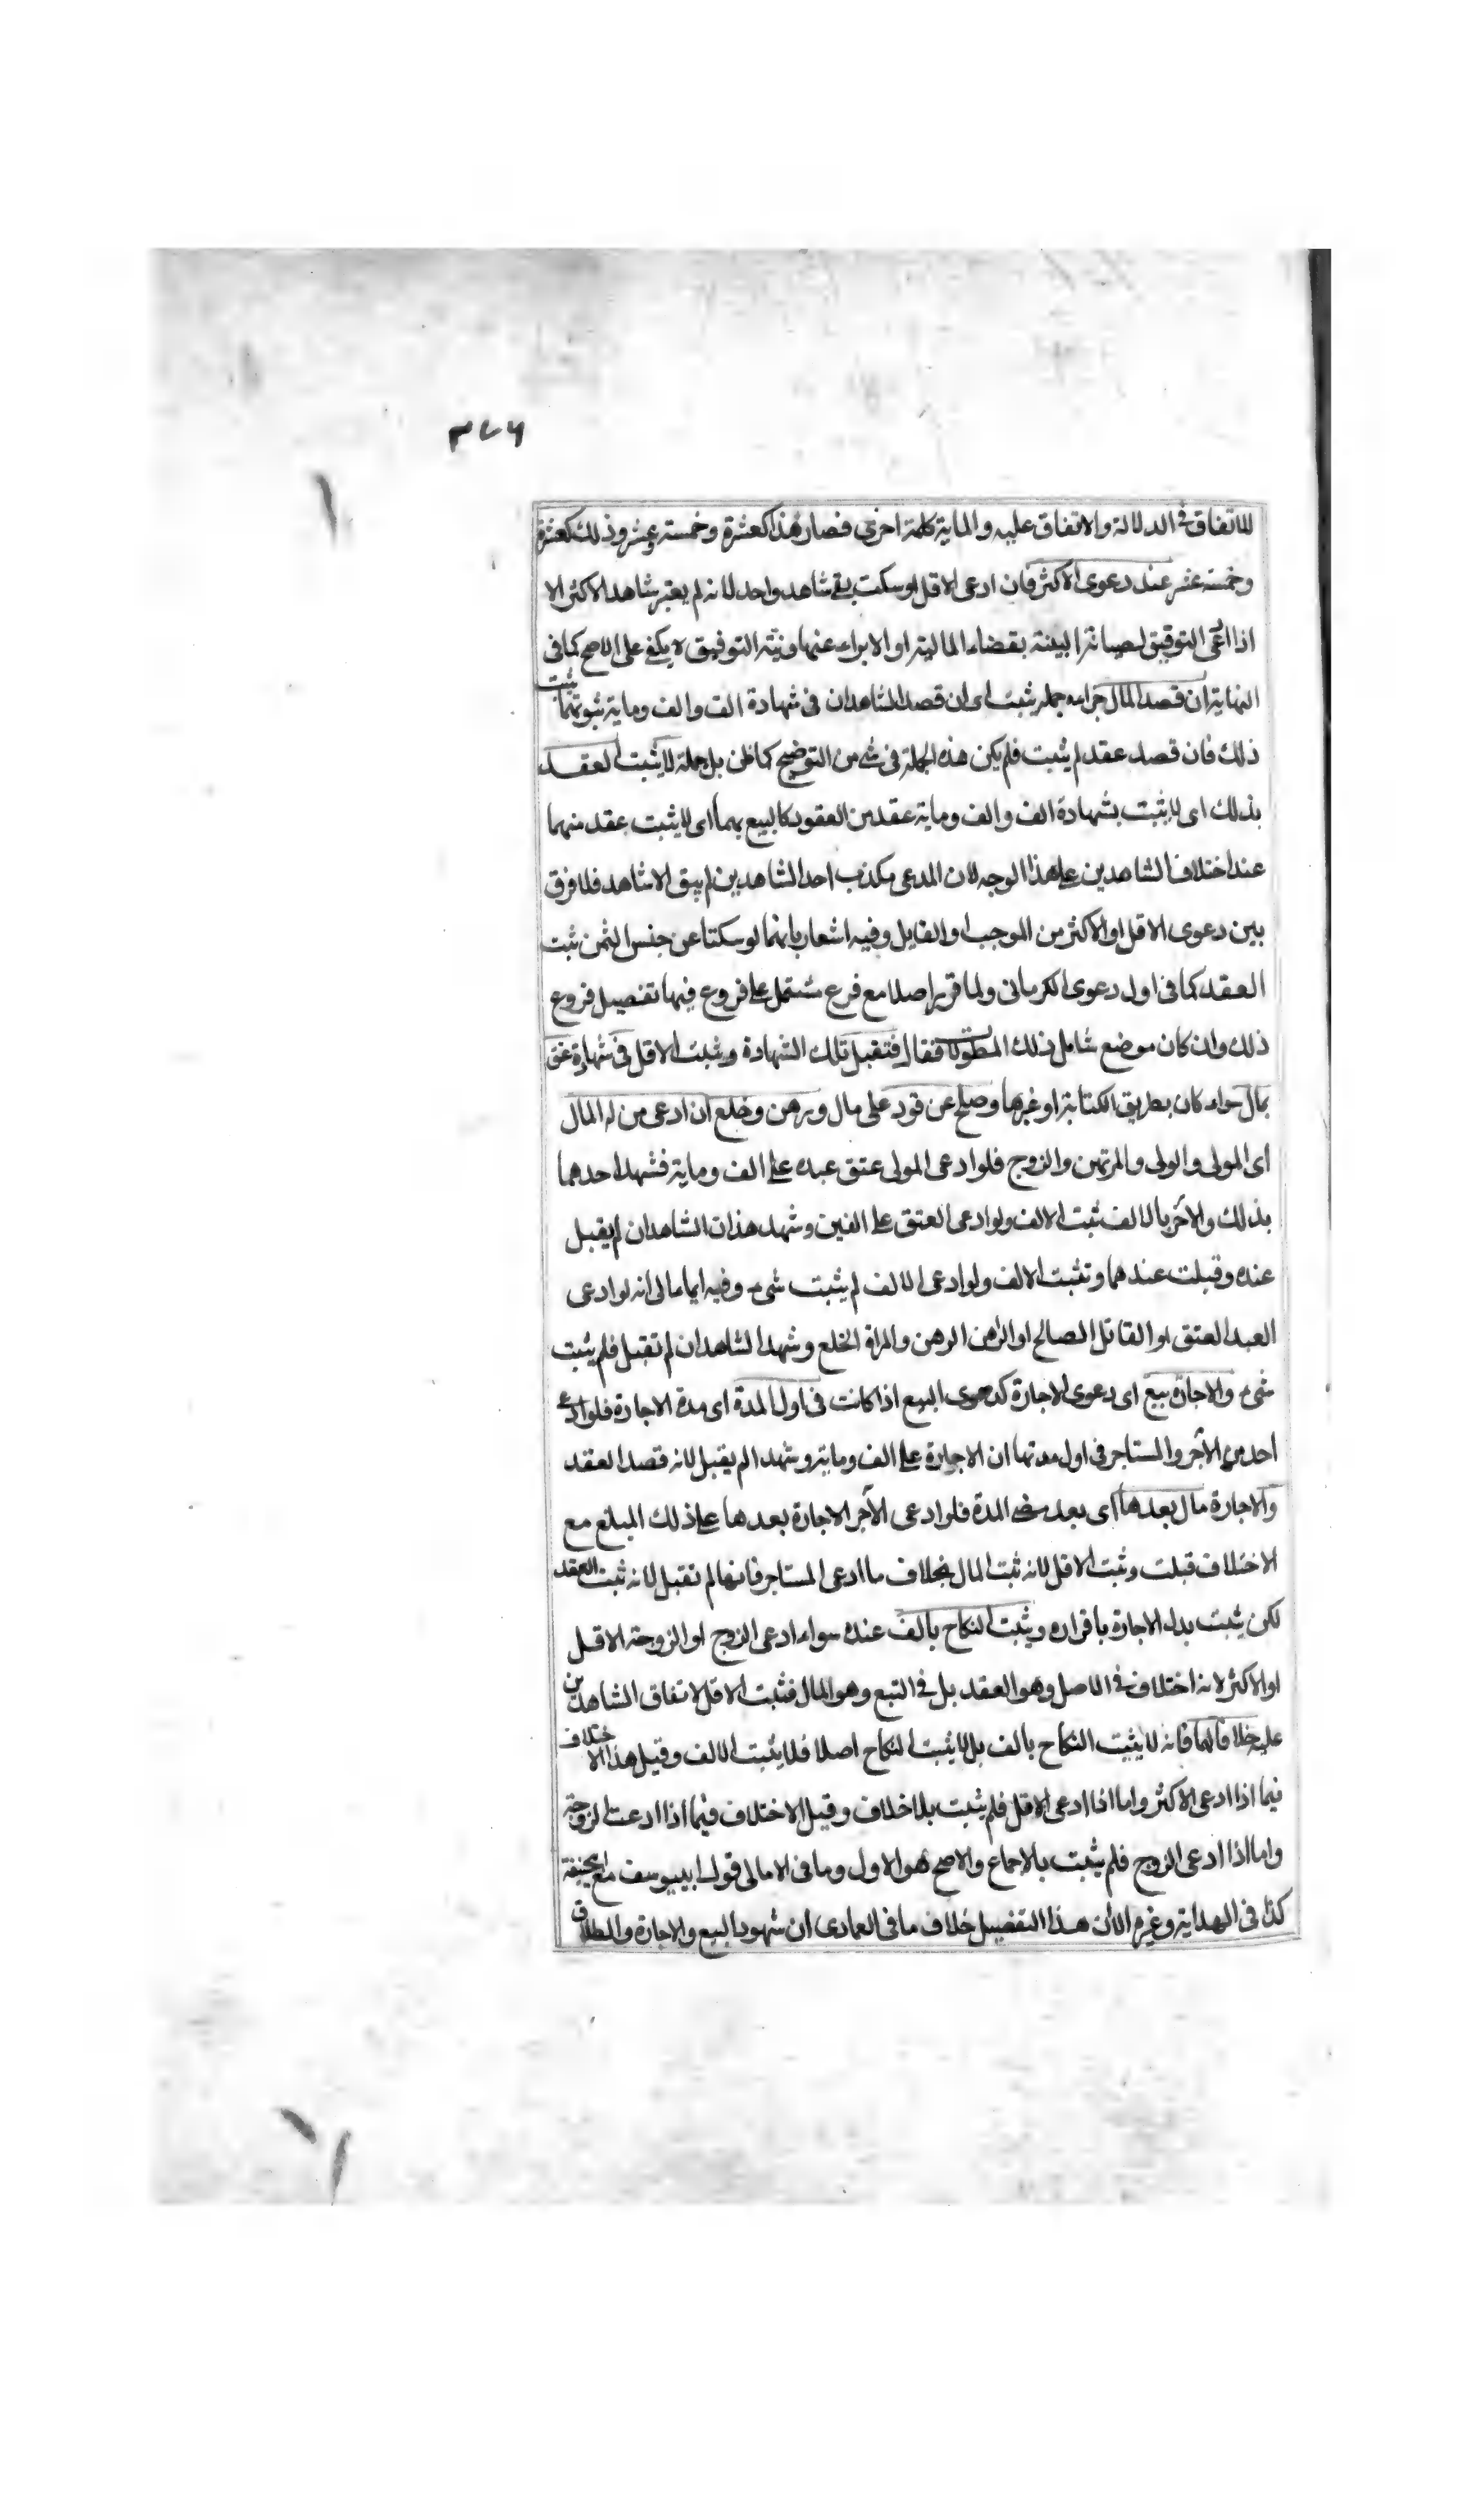 ٣٧٦
للاتفاق فى الدلالة والاتفاق عليه والماية كلمة اخرى فصار هذا كعشرة وخمسة وعشر وذلك كعشرة
وخمسة عشر عند دعوى الاكثر فان ادعى الاقل او سكت بقى شاهد واحد لانه لم يعتبر شاهد الاكثر الا
اذا ادعى التوفيق لصيانة البينة بقضاء الماية او الابراء عنها ونية التوفيق لا يكفى على الاصح كما فى
النهاية ان قصد المال جزاءه جملة ثبت اى ان قصد الشاهدان فى شهادة الف والف وماية ثبوتهما ثبت
ذلك فان قصد عقد لم يثبت فلم يكن هذه الجملة فى شئ من التوضيح كما ظن بل جملة لا يثبت العقد
بذلك اى لا يثبت بشهادة الف والف وماية عقد من العقود كالبيع بهما اى لا يثبت عقد منهما
عند اختلاف الشاهدين على هذا الوجه لان المدعى مكذب احد الشاهدين لم يبق الا شاهد فلا فرق
بين دعوى الاقل او الاكثر من الموجب او القابل وفيه اشعار بانهما لو سكتا عن جنس الثمن ثبت
العقد كما فى اول دعوى الكرمانى ولما قرر اصلا مع فرع مشتمل على فروع فيها تفصيل فروع
ذلك وان كان موضع شامل ذلك المطولات فقال فتقبل تلك الشهادة ويثبت الاقل فى شهادة عتق
بمال سواء كان بطريق الكتابة او غيرها وصلح عن قود على مال ورهن وخلع ان ادعى من له المال
اى المولى والولى والمرتهن والزوج فلو ادعى المولى عتق عبده على الف وماية فشهد احدهما
بذلك والآخر بالالف ثبت الالف ولو ادعى العتق على الفين وشهد هذان الشاهدان لم يقبل
عنده وقبلت عندهما وتثبت الالف ولو ادعى الالف لم يثبت شىء وفيه ايماء الى انه لو ادعى
العبد العتق او القاتل الصالح او الراهن الرهن والمراة الخلع وشهد الشاهدان لم تقبل فلم يثبت
شىء والاجارة بيع اى دعوى الاجارة كدعوى البيع اذا كانت فى اول المدة اى مدة الاجارة فلو ادعى
احد من الآجر والمستاجر فى اول مدتها ان الاجارة على الف وماية وشهدا لم يقبل لانه قصد العقد
والاجارة مال بعدها اى بعد مضى المدة فلو ادعى الآجر الاجارة بعدها على ذلك المبلغ مع
الاختلاف قبلت وثبت الاقل لانه ثبت المال بخلاف ما ادعى المستاجر فانها لم تقبل لانه ثبت العقد
لكن يثبت بدل الاجارة باقراره ويثبت النكاح بالف عنده سواء ادعى الزوج او الزوجة الاقل
او الاكثر لانه اختلاف فى الاصل وهو العقد بل فى التبع وهو المال فثبت الاقل لاتفاق الشاهدين
عليه خلافا لهما فانه لا يثبت النكاح بالف بل لا يثبت النكاح اصلا فلا يثبت الالف وقيل هذا الاختلاف
فيما اذا ادعى الاكثر واما اذا ادعى الاقل فلم يثبت بلا خلاف وقيل الاختلاف فيما اذا ادعت الزوجة
واما اذا ادعى الزوج فلم يثبت بالاجماع والاصح هو الاول وما فى الامالى قول ابييوسف مع ابيحنيفة
كذا فى الهداية وغيره الا ان هذا التفصيل خلاف ما فى العمادى ان شهود البيع والاجارة والطلاق